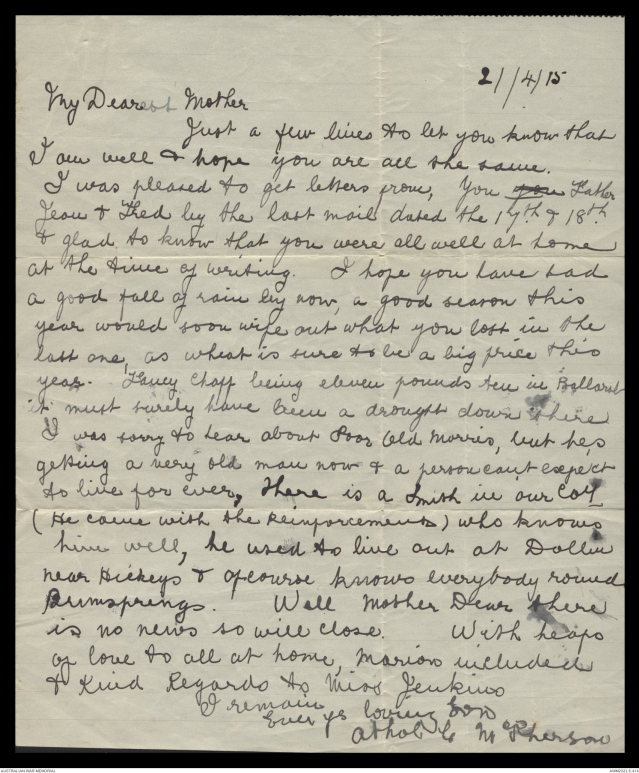 21/4/15
My Dearest Mother
Just a few lines to let you know that
I am well & hope you are all the same.
I was pleased to get letters from, You you Father
Jean & Fred by the last mail dated the 17th & 18th
& glad to know that you were all well at home
at the time of writing. I hope you have had
a good fall of rain by now, a good season this
year would soon wipe out what you lost in the
last one, as wheat is sure to be a big price this
year. Fancy Chaff being eleven pounds ten in Ballarat
it must surely have been a drought down there
I was sorry to hear about Poor Old Morris, but he's
getting a very old man now & a person can't expect
to live for ever, There is a Smith in our Coy
(He came with the Reinforcements) who knows
him well, he used to live out at
near Hickeys & ofcourse knows everybody round
Brimsprings. Well Mother Dear there
is no news so will close. With heaps
of love to all at home, Marion included
& Kind Regards to Miss Jenkins
I remain
Ever yr loving Son
Athol G McPherson
AUSTRALIAN WAR MEMORIAL